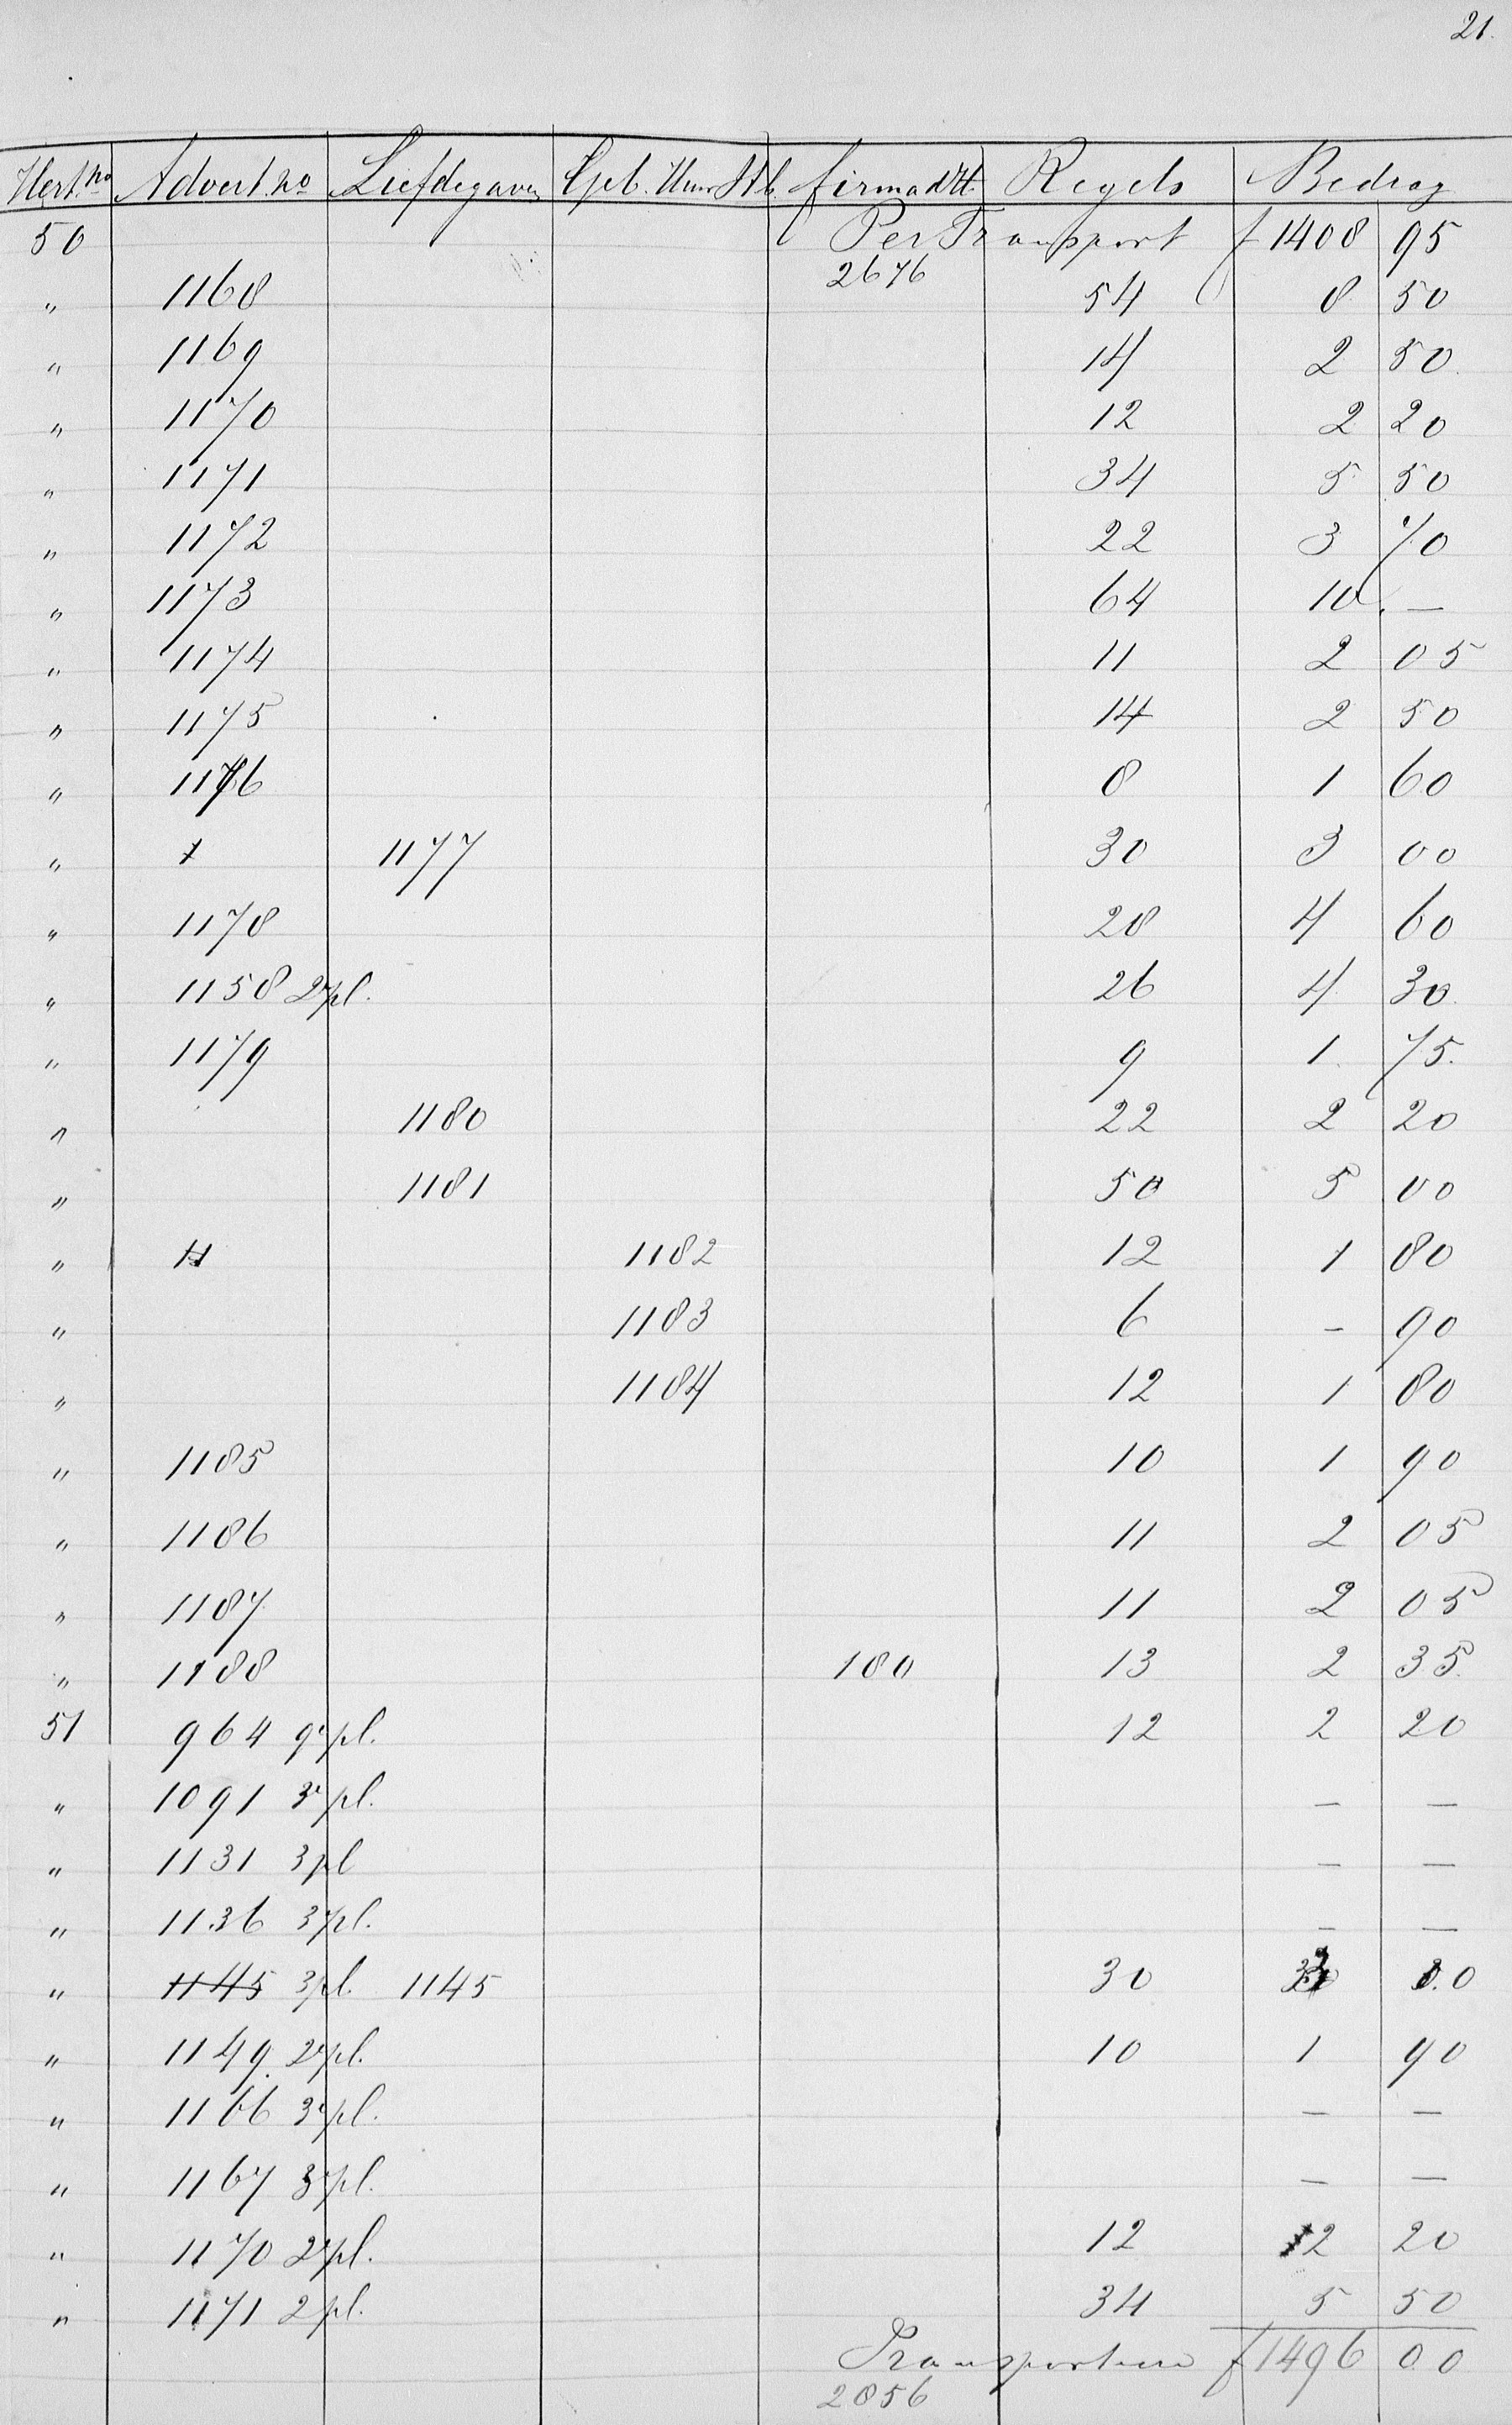 21.
Hert. no Advert. no Liefdegaven Gpl. Uur Stb. firma dtt. Regels Bedrag
50 Per Transport f 1408 95
2676
" 1168 54 8 50
" 1169 14 2 50
" 1170 12 2 20
" 1171 34 5 50
" 1172 22 3 70
" 1173 64 10. —
" 1174 11 2 05
" 1175 14 2 50
" 1176 8 1 60
" 1177 30 3 00
" 1178 28 4 60
" 1158 2e pl. 26 4 30
" 1179 9 1 75.
" 1180 22 2 20
" 1181 50 5 00
" 11 1182 12 1 80
" 1183 6 - 90
" 1184 12 1 80
" 1185 10 1 90
" 1186 11 2 05
" 1187 11 2 05
" 1188 180 13 2 35.
51 964 9e pl. 12 2 20
" 1091 3e pl. — —
" 1131 3 pl — —
" 1136 3e pl. — —
" 1145 3 pl. 1145 30 3 00
" 1149. 2e pl. 10 1 90
" 1166 3e pl. — —
" 1167 3e pl. — —
" 1170 2e pl. 12 2 20
" 1171 2 pl. 34 5 50
Transporteere f 1496 00
2856